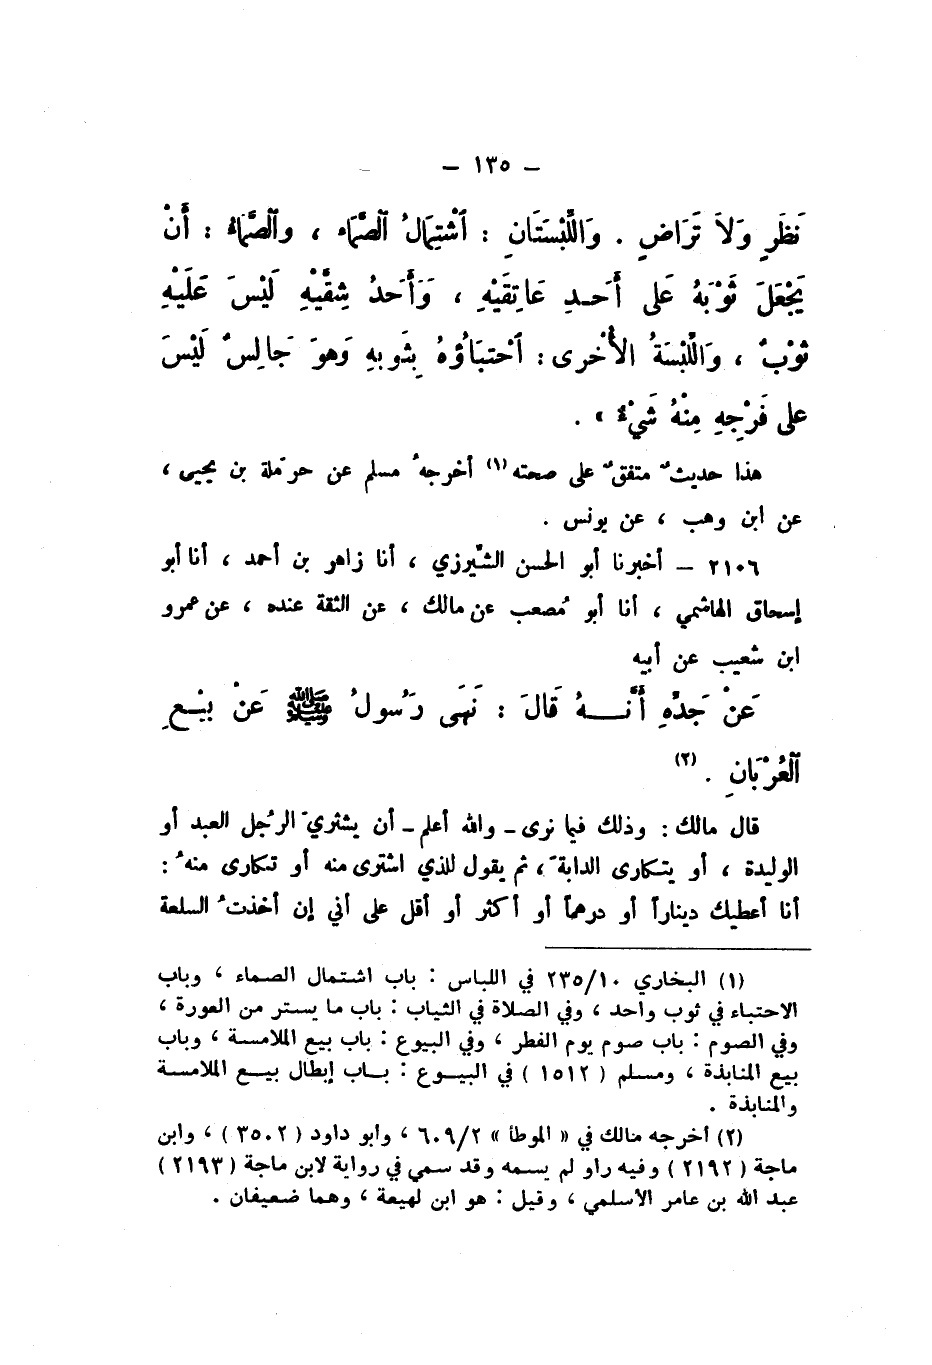 – ١٣٥ –
نَظَرٍ وَلاَ تَرَاضٍ . وَاللَّبْسَتَانِ : ٱشْتِمَالُ ٱلصَّمَّاء ، وٱلصَّمَّاءُ : أَنْ
يَجْعَلَ ثَوْبَهُ عَلى أَحَدِ عَاتِقَيْهِ ، وَوَأَحَدُ شِقَّيْهِ لَيْسَ عَلَيْهِ
ثَوْبٌ ، وَاللَّبْسَةُ الأُخْرى : ٱحْتبَاؤُهُ بِثَوبهِ وَهوَ جَالِسٌ لَيْسَ
على فَرْجِهِ مِنْهُ شَيْءٌ » .
هذا حديثٌ متفقٌ على صحته (١) أخرجهُ مسلم عن حرمَلة بن يحيى ،
عن ابن وهب ، عن يونس .
٢١٠٦ – أخبرنا أبو الحسن الشّيرزي ، أنا زاهر بن أحمد ، أنا أبو
إسحاق الهاشمي ، أنا أبو مُصعب عن مالك ، عن الثقة عنده ، عن عمرو
ابن شعيب عن أبيه
عَنْ جَدِّهِ أَنَّهُ قَالَ : نَهَى رَسُولُ ﷺ عَنْ بَيْعِ
ٱلْعُرْبَانِ . (٢)
قال مالك : وذلك فيما نرى – والله أعلم – أن يشتريَ الرجُل العبد أو
الوليدة ، أو يتكارى الدابةَ ، ثم يقول للذي اشترى منه أو تكارى منهُ :
أنا أعطيك ديناراً أو درهماً أو أكثر أو أقل على أني إن أخذتُ السلعة
(١) البخاري ٢٣٥/١٠ في اللباس : باب اشتمال الصماء ، وباب
الاحتباء في ثوب واحد ، وفي الصلاة في الثياب : باب ما يستر من العورة ،
وفي الصوم : باب صوم يوم الفطر ، وفي البيوع : باب بيع الملامسة ، وباب
بيع المنابذة ، ومسلم ( ١٥١٢ ) في البيوع : باب إبطال بيع الملامسة
والمنابذة .
(٢) أخرجه مالك في « الموطأ » ٦٠٩/٢ ، وأبو داود ( ٣٥٠٢ ) ، وابن
ماجة ( ٢١٩٢ ) وفيه راو لم يسمه وقد سمي في رواية لابن ماجة ( ٢١٩٣ )
عبد الله بن عامر الأسلمي ، وقيل : هو ابن لهيعة ، وهما ضعيفان .